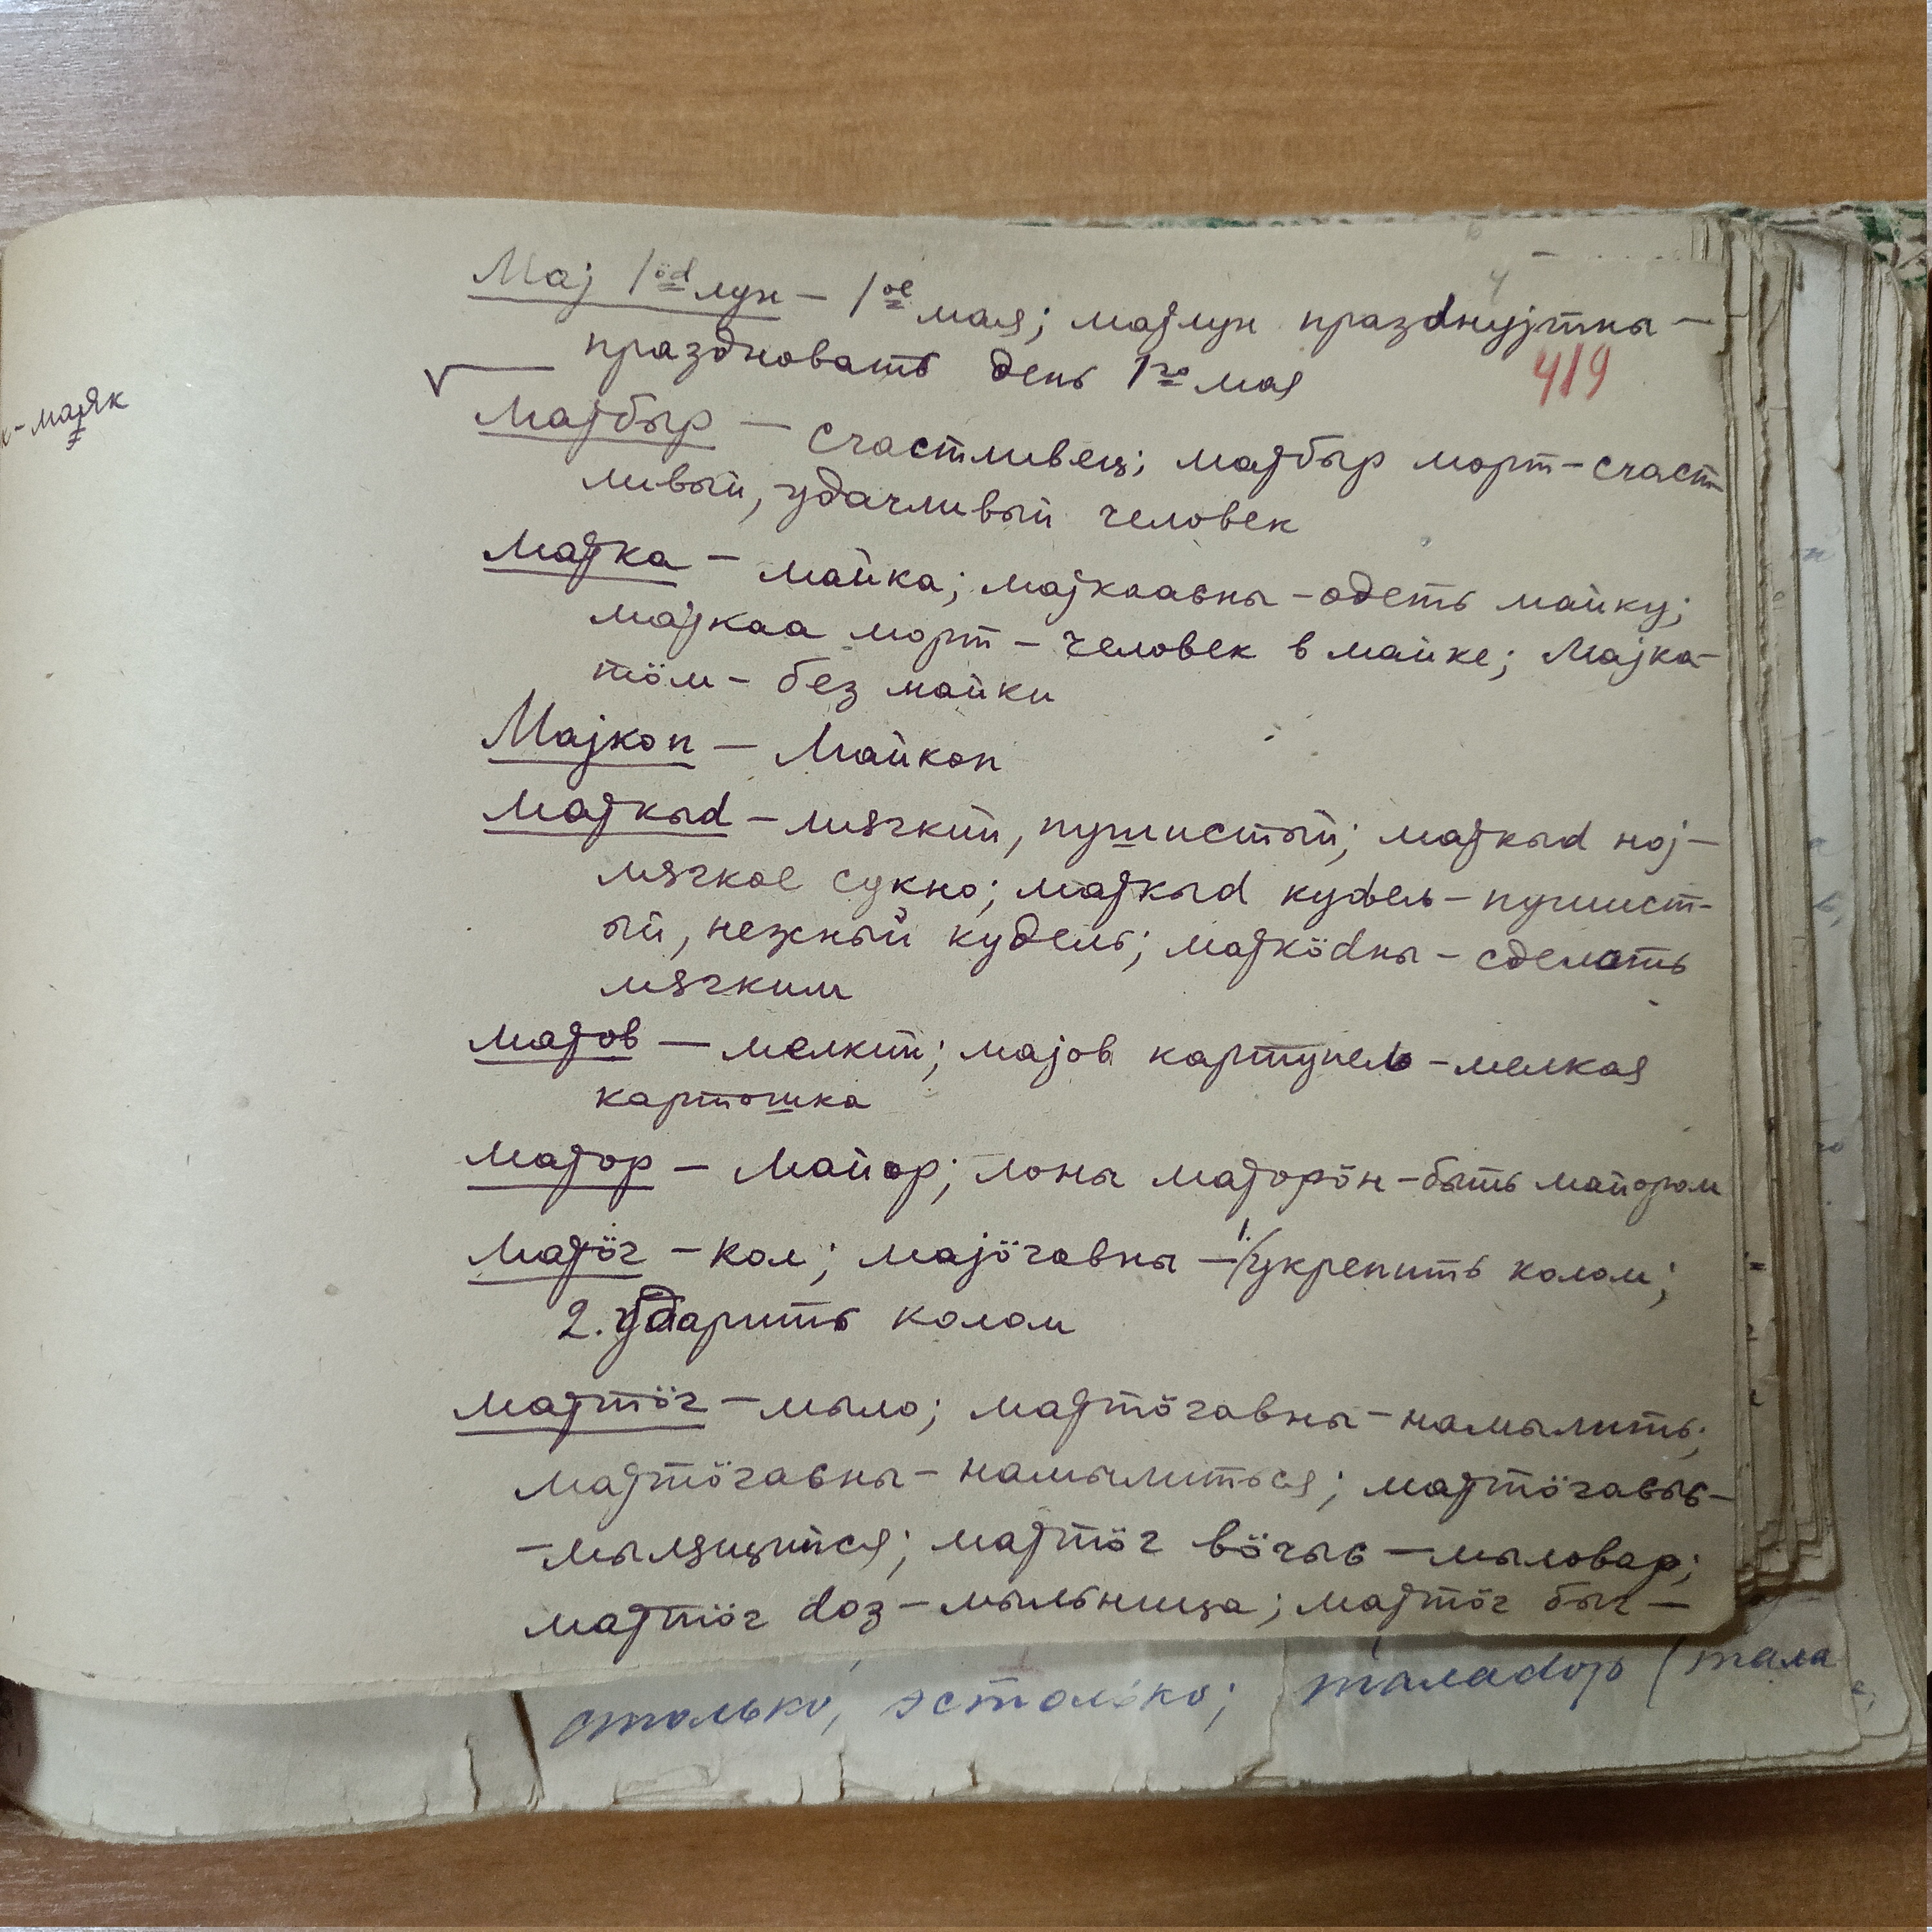 Мај 1ӧd лун – 1ое мая; мајлун празdнујтны –
праздновать день 1го мая
419
– маяк
мајбыр – счастливец; мајбыр морт – счаст-
ливый, удачливый человек
мајка – майка; мајкаавны – одеть майку;
мајкаа морт – человек в майке; мајка-
тӧм – без майки
Мајкоп – Майкоп
мајкыd – мягкий, пушистый; мајкыd ној –
мягкое сукно; мајкыd куԁель – пушист-
ый, нежный кудель; мајкӧdны – сделать
мягким
мајов – мелкий; мајов картупель – мелкая
картошка
мајор – майор; лоны мајорӧн – быть майором
мајӧг – кол; мајӧгавны – 1. укрепить колом;
2. ударить колом
мајтӧг – мыло; мајтӧгавны – намылить;
мајтӧгасны – намылиться; мајтӧгасыс –
– мылящийся; мајтӧг вӧчыс – мыловар;
мајтӧг dоз – мыльница; мајтӧг быг –
столько, эстолько; (тала